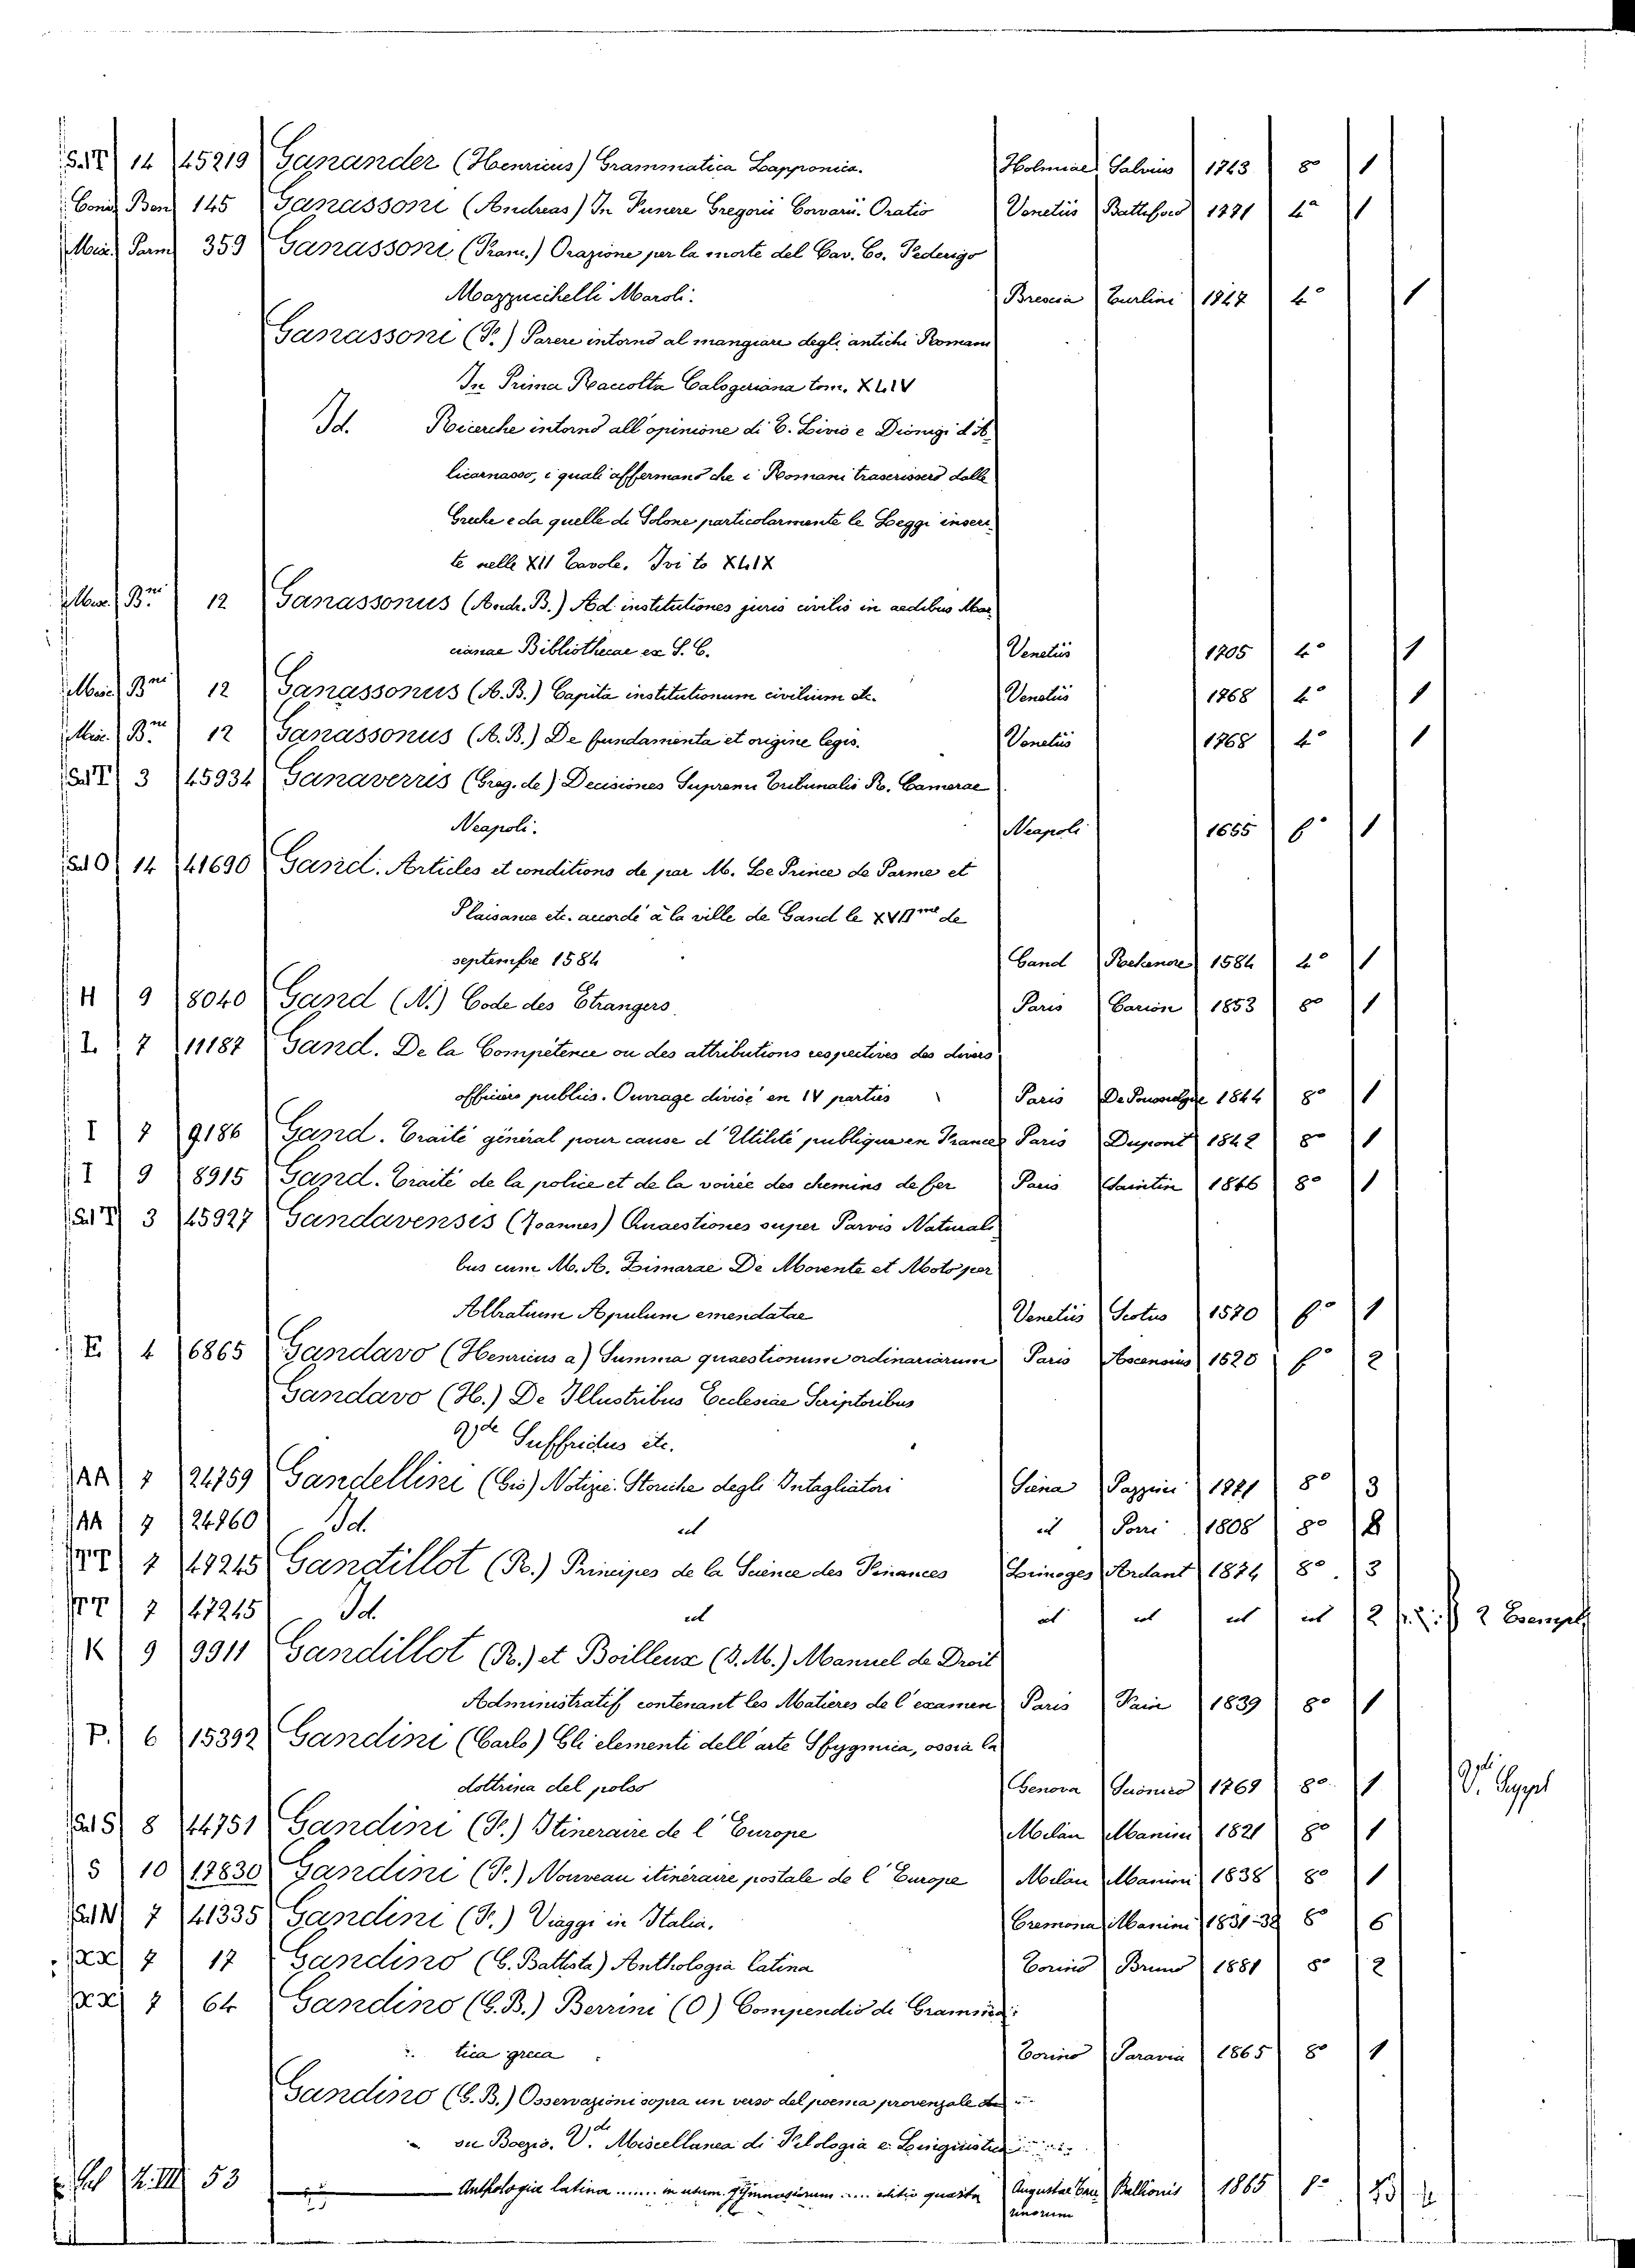 Sal T 14 45219 Ganander (Henricus) Grammatica Lapponica. Holmiae Salvius 1743 8° 1
Bon 145 Ganassoni (Andreas) In Funere Gregorii Oratio Venetiis 4° 1
Parm 359 Ganassoni (Franc.) Orazione per la morte del Cav. Co. Federigo
Mazzucchelli Maroli. Brescia 4° 1
Ganassoni (F.) Parere intorno al mangiare degli antichi Romani
In Prima Raccolta Calogeriana tom. XLIV
Id. Ricerche intorno all'opinione di T. Livio e Dionigi d'A
licarnasso, i quali affermano che i Romani trascrissero dalle
Greche e da quelle di Solone particolarmente le Leggi inseri
te nelle XII Tavole. Ivi to XLIX
12 Ganassonus (Andr. B.) Ad institutiones juris civilis in aedibus Mar
cianae Bibliothecae ex S. C. Venetiis 4° 1
12 Ganassonus (A. B.) Capita institutionum civilium etc. Venetiis 1768 4° 1
12 Ganassonus (A. B.) De fundamenta et origine legis. Venetiis 1768 4° 1
Sal T 3 45934 Ganaverrus (Greg. de) Decisiones Supremi Tribunalis R. Camerae
Neapoli. Neapoli 1655 f° 1
Sal O 14 41690 Gand. Articles et conditions de par M. Le Prince de Parme et
Plaisance etc. accordé à la ville de Gand le XVIIme de
septembre 1584 Gand 1584 4° 1
H 9 8040 Gand (N.) Code des Etrangers Paris Carion 1853 8° 1
I. 7 11187 Gand. De la Compétence ou des attributions respectives des divers
officiers publics. Ouvrage divisé en IV parties Paris 1844 8° 1
I 7 9186 Gand. Traité général pour cause d'Utilité publique en France Paris Dupont 1842 8° 1
I 9 8915 Gand. Traité de la police et de la voirie des chemins de fer Paris Saintin 1846 8° 1
Sal T 3 45927 Gandavensis (Joannes) Quaestiones super Parvis Naturali
bus cum M. A. Zimarae De Movente et Moto per
Albratium Apulum emendatae Venetiis Scotus 1570 f° 1
E 4 6865 Gandavo (Henricus a) Summa quaestionum ordinariarum Paris Ascensius 1520 f° 2
Gandavo (H.) De Illustribus Ecclesiae Scriptoribus
Vde Suffridus etc.
AA 7 24759 Gandellini (Gio) Notizie Storiche degli Intagliatori Siena Pazzini 1771 8° 3
AA 7 24760 Id. id id Porri 1808 8°
TT 7 47245 Gandillot (R.) Principes de la Science des Finances Limoges Ardant 1874 8°. 3
TT 7 47245 Id. id id id id id 2 2 Esempl
K 9 9911 Gandillot (R.) et Boilleux (J. M.) Manuel de Droit
Administratif contenant les Matières de l'examen Paris Pain 1839 8° 1
P. 6 15392 Gandini (Carlo) Gli elementi dell'arte Sfygmica, ossia la
dottrina del polso Genova 1769 8° 1
Sal S 8 44751 Gandini (F.) Itineraire de l'Europe Milan Manini 1821 8° 1
S 10 17830 Gandini (F.) Nouveau itinéraire postale de l'Europe Milan Manini 1838 8° 1
Sal N 7 41335 Gandini (F.) Viaggi in Italia. Cremona Manini 1831-38 8° 6
XX 7 17 Gandino (G. Battista) Anthologia latina Torino Bruno 1881 8° 2
XX 7 64 Gandino (G. B.) Berrini (O) Compendio di Gramma
tica greca Torino Paravia 1865 8° 1
Gandino (G. B.) Osservazioni sopra un verso del poema provenzale
su Boezio. Vde Miscellanea di Filologia e Linguistica
53 Anthologia latina ....... in usum gymnasiorum ..... editio quarta Augustae Tau Ballionis 1865 8°
rinorum